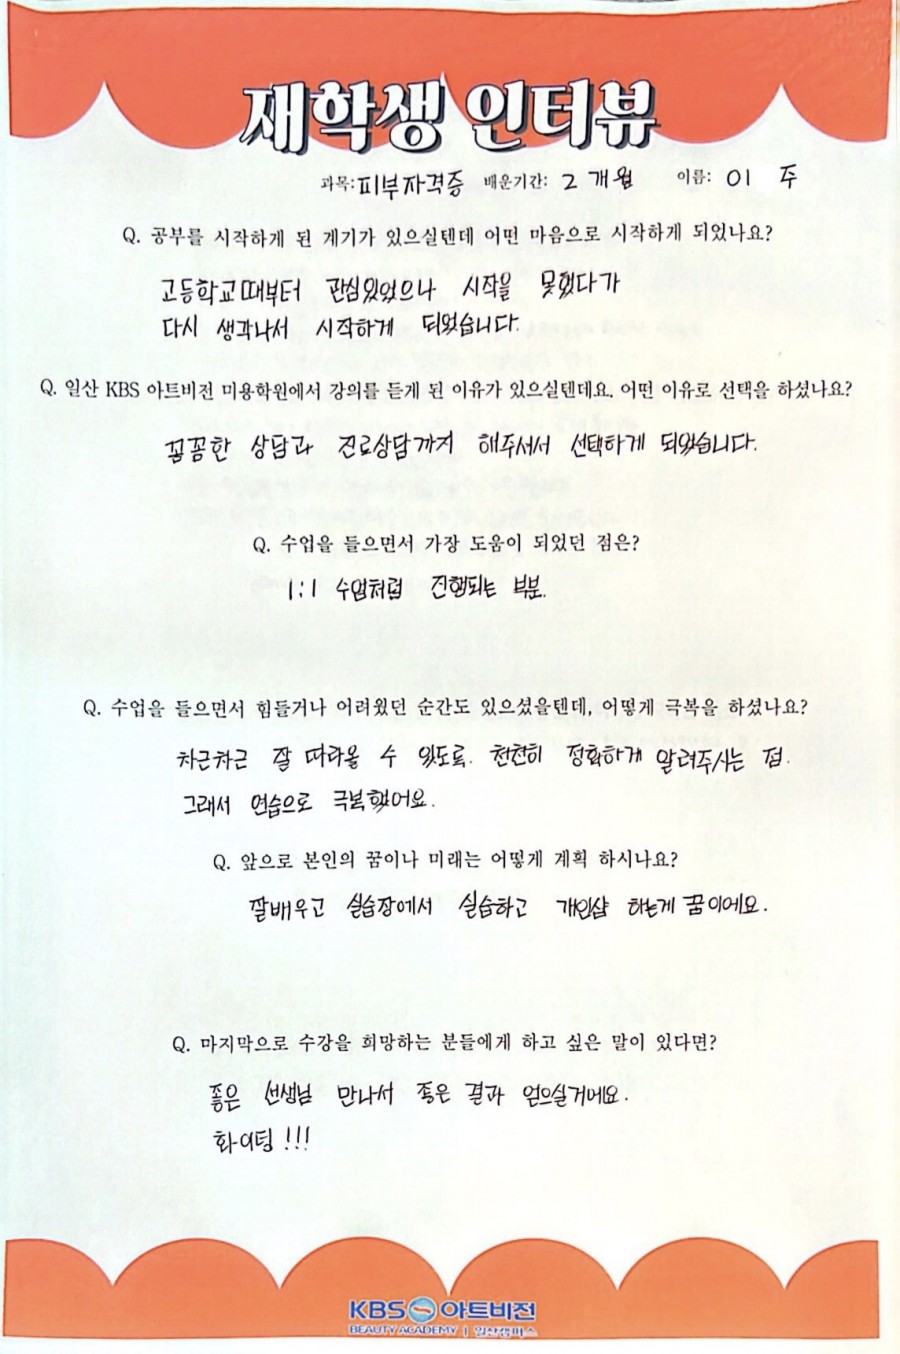 재학생 인터뷰
과목: 피부자격증 배운기간: 2개월 이름: 이 주
Q. 공부를 시작하게 된 계기가 있으실텐데 어떤 마음으로 시작하게 되었나요?
고등학교때부터 관심있었으나 시작을 못했다가
다시 생각나서 시작하게 되었습니다.
Q. 일산 KBS 아트비전 미용학원에서 강의를 듣게 된 이유가 있으실텐데요. 어떤 이유로 선택을 하셨나요?
꼼꼼한 상담과 진로상담까지 해주셔서 선택하게 되었습니다.
Q. 수업을 들으면서 가장 도움이 되었던 점은?
1:1 수업처럼 진행되는 부분.
Q. 수업을 들으면서 힘들거나 어려웠던 순간도 있으셨을텐데, 어떻게 극복을 하셨나요?
차근차근 잘 따라올 수 있도록. 천천히 정확하게 알려주시는 점.
그래서 연습으로 극복했어요.
Q. 앞으로 본인의 꿈이나 미래는 어떻게 계획 하시나요?
잘배우고 실습장에서 실습하고 개인샵 하는게 꿈이에요.
Q. 마지막으로 수강을 희망하는 분들에게 하고 싶은 말이 있다면?
좋은 선생님 만나서 좋은 결과 얻으실거에요.
화이팅!!!
KBS 아트비전
BEAUTY ACADEMY | 일산캠퍼스